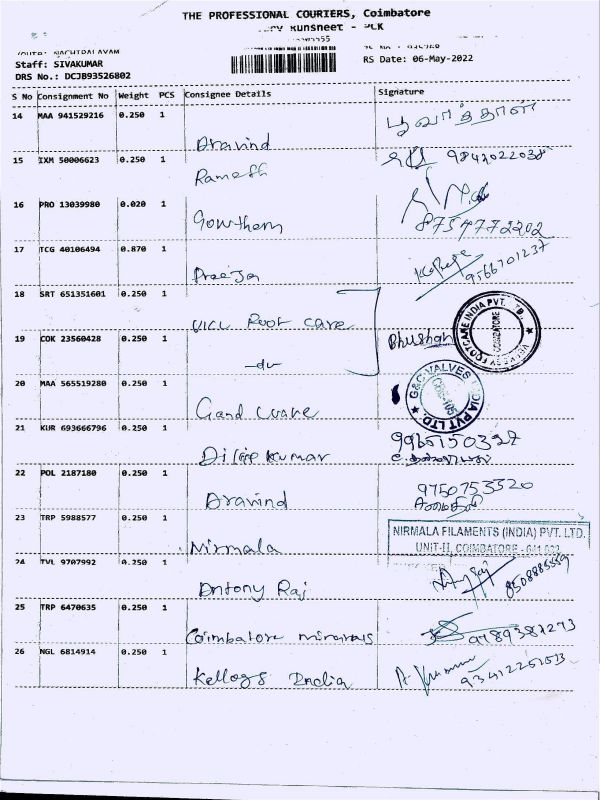 THE PROFESSIONAL COURIERS, Coimbatore
Staff: SIVAKUMAR
RS Date: 06-May-2022
DRS No.: DCJB93526802
S No Consignment No Weight PCS Consignee Details Signature
14 MAA 941529216 0.250 1 Aravind பூவாத்தாள்
15 IXM 50006623 0.250 1 Ramesh 9842022038
16 PRO 13039980 0.020 1 Gowtham 8754772202
17 TCG 40106494 0.870 1 9566701237
18 SRT 651351601 0.250 1 Foot care
19 COK 23560428 0.250 1 -do- Bhushan
FOOTCARE INDIA PVT. LTD.
COIMBATORE
20 MAA 565519280 0.250 1 G and
G&C VALVES INDIA PVT LTD.
21 KUR 693666796 0.250 1 Dilip Kumar 9965150327
22 POL 2187180 0.250 1 Aravind 9750753320
23 TRP 5988577 0.250 1 Nirmala
NIRMALA FILAMENTS (INDIA) PVT. LTD.
UNIT-II, COIMBATORE
24 TVL 9707992 0.250 1 Antony Raj 8508885559
25 TRP 6470635 0.250 1 Coimbatore 9789387273
26 NGL 6814914 0.250 1 Kellogs India